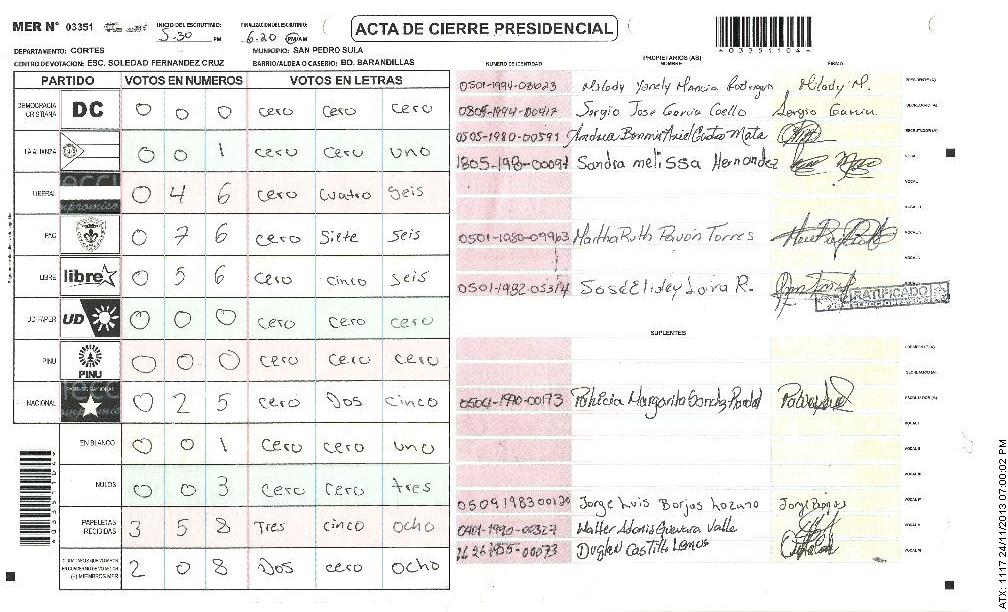 MER N° 03351 INICIO DEL ESCRUTINIO: 5:30 PM FINALIZACION DEL ESCRUTINIO: 6:20 PM/AM
ACTA DE CIERRE PRESIDENCIAL
*03351104*
DEPARTAMENTO: CORTES MUNICIPIO: SAN PEDRO SULA
CENTRO DE VOTACION: ESC. SOLEDAD FERNANDEZ CRUZ BARRIO/ALDEA O CASERIO: BO. BARANDILLAS
PARTIDO VOTOS EN NUMEROS VOTOS EN LETRAS
DEMOCRACIA CRISTIANA DC 0 0 0 cero cero cero
LA ALIANZA 0 0 1 cero cero uno
LIBERAL 0 4 6 cero cuatro seis
PAC 0 7 6 cero Siete seis
LIBRE libre 0 5 6 cero cinco seis
UD/FAPER UD 0 0 0 cero cero cero
PINU PINU 0 0 0 cero cero cero
NACIONAL 0 2 5 cero Dos cinco
EN BLANCO 0 0 1 cero cero uno
NULOS 0 0 3 cero cero tres
PAPELETAS RECIBIDAS 3 5 8 Tres cinco ocho
(+) MIEMBROS MER 2 0 8 Dos cero ocho
PROPIETARIOS (AS)
NUMERO DE IDENTIDAD NOMBRE FIRMA
Milady M. PRESIDENTE (A)
Sergio Jose Garcia Coello Sergio Garcia SECRETARIO (A)
0505-1980-00591 ESCRUTADOR (A)
Sandra melissa Hernandez VOCAL
VOCAL
VOCAL
0501-1980-09963 Martha Ruth Pavón Torres VOCAL
VOCAL
0501-1982-05314 VOCAL
RATIFICADO
SUPLENTES
PRESIDENTE (A)
SECRETARIO (A)
0501-1990-00173 Patricia Margarita ESCRUTADOR (A)
VOCAL
VOCAL
VOCAL
0509198300120 Jorge Luis Borjas Lozano Jorge Borjas VOCAL
0401-1990-00327 Walter Adonis Guevara Valle VOCAL
Castillo Lemus VOCAL
ATX: 1117 24/11/2013 07:00:02 PM